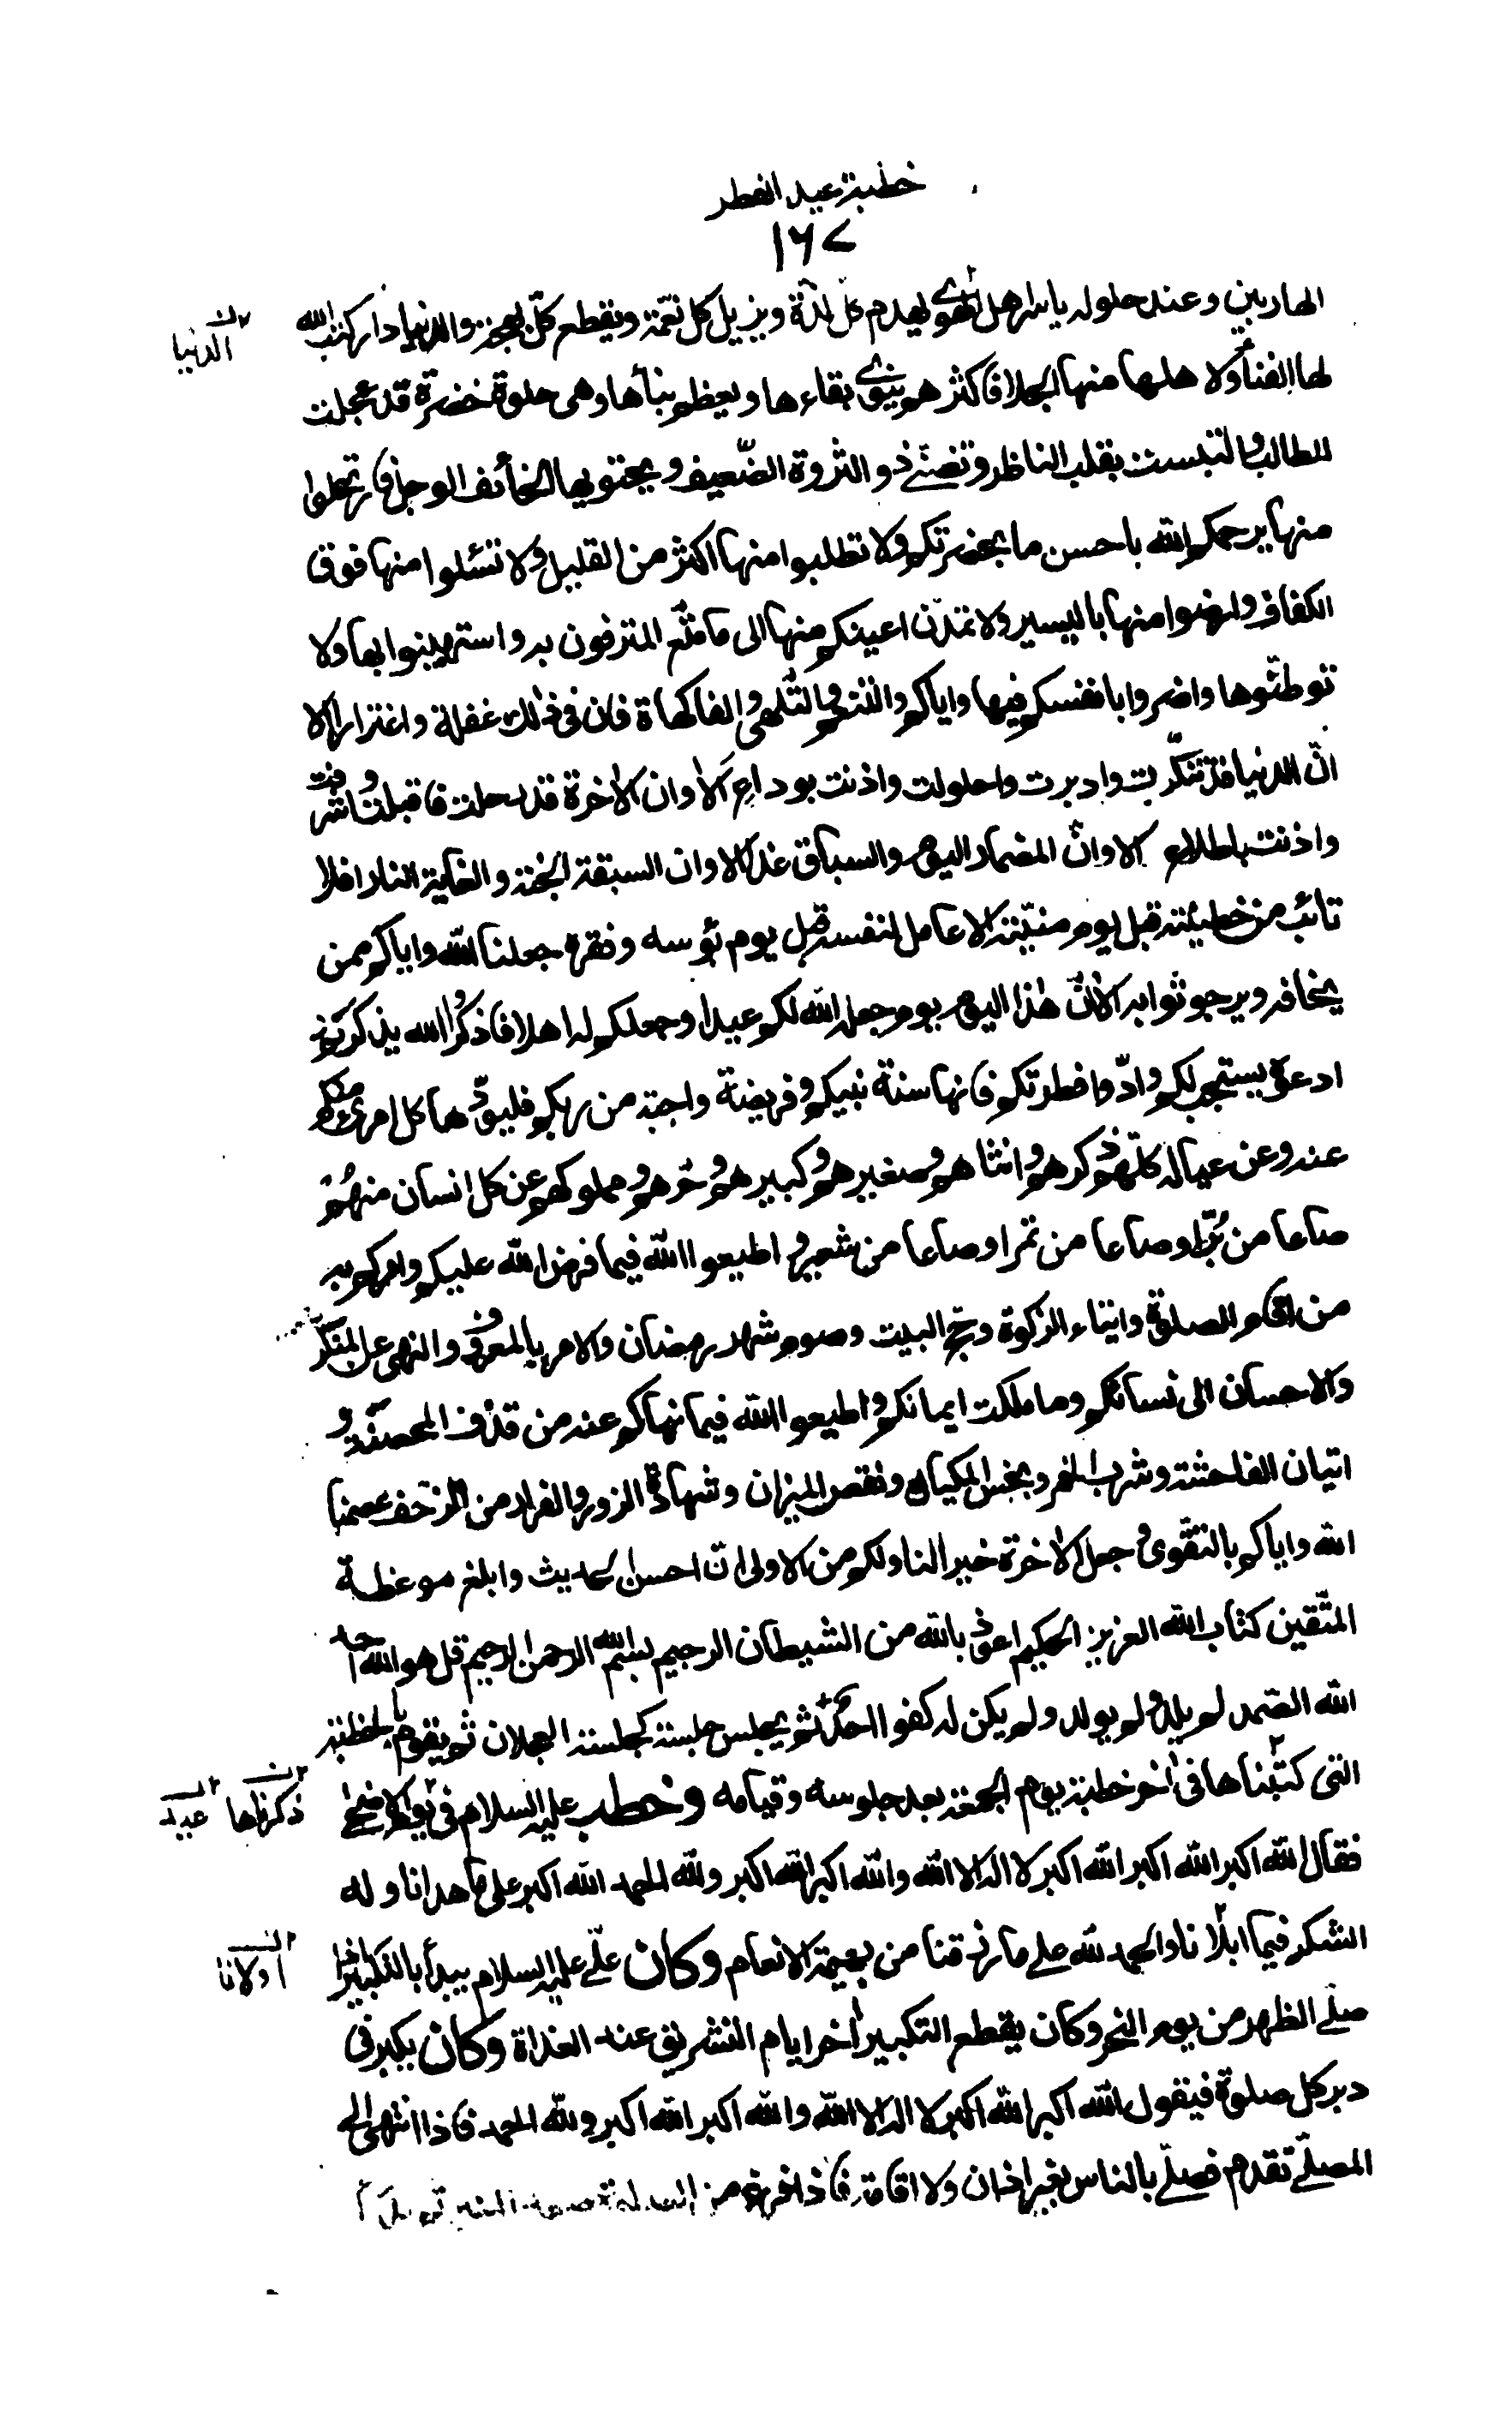 خطبة عيد الفطر
١٦٧
الهاربين وعند حلوله ياسر اهل الهوى يهدم كل لذة ويزيل كل نعمة ويقطع كل بهجة والدنيا دار كتب الله
الدنيا
لها الفناء ولاهلها منها الجلا فاكثرهم ينوى بقاءها ويعظم بناءها وهى حلوة خضرة قد عجلت
للطالب والتبست بقلب الناظر و ذو الثروة الضعيف ويجتويها الخائف الوجل فارتحلوا
منها يرحمكم الله باحسن ما بحضرتكم ولا تطلبوا منها اكثر من القليل ولا تسئلوا منها فوق
الكفاف وارضوا منها باليسير ولا تمدن اعينكم منها الى ما متع المترفون به واستهينوا بها ولا
توطنوها واضروا بانفسكم فيها واياكم والتنعم والتلهى والفاكهاة فان فى ذلك غفلة واغترار الا
ان الدنيا قد تنكرت وادبرت واحلولت واذنت بوداع الا وان الاخرة قد رحلت فاقبلت واشرفت
واذنت باطلاع الا وان المضمار اليوم والسباق غدا الا وان السبقة الجنة والغاية النار افلا
تائب من خطيئته قبل يوم منيته الا عامل لنفسه قبل يوم بؤسه وفقره جعلنا الله واياكم ممن
يخافه ويرجو ثوابه الا ان هذا اليوم يوم جعله الله لكم عيدا وجعلكم له اهلا فاذكروا الله يذكركم
ادعوه يستجب لكم وادوا فطرتكم فانها سنة نبيكم وفريضة واجبة من ربكم فليؤدها كل امرئ منكم
عنه وعن عياله كلهم ذكرهم وانثاهم وصغيرهم وكبيرهم وحرهم ومملوكهم عن كل انسان منهم
صاعا من بر او صاعا من تمر او صاعا من شعير و اطيعوا الله فيما فرض الله عليكم وامركم به
من اقام الصلوة وايتاء الزكوة وحج البيت وصوم شهر رمضان والامر بالمعروف والنهى عن المنكر
والاحسان الى نسائكم وما ملكت ايمانكم واطيعوا الله فيما نهاكم عنه من قذف المحصنة و
اتيان الفاحشة وشرب الخمر وبخس المكيال ونقص الميزان وشهادة الزور والفرار من الزحف عصمنا
الله واياكم بالتقوى وجعل الاخرة خيرا لنا ولكم من الاولى ان احسن الحديث وابلغ موعظة
المتقين كتاب الله العزيز الحكيم اعوذ بالله من الشيطان الرجيم بسم الله الرحمن الرحيم قل هو الله احد
الله الصمد لم يلد ولم يولد ولم يكن له كفوا احد ثم يجلس جلسة كجلسة العجلان ثم يقوم بالخطبة
التى كتبناها فى اخر خطبة يوم الجمعة بعد جلوسه وقيامه وخطب عليه السلام فى يوم الاضحى
ذكرناها عيد
فقال الله اكبر الله اكبر الله اكبر لا اله الا الله والله اكبر الله اكبر ولله الحمد الله اكبر على ما هدانا وله
الشكر فيما ابلانا والحمد لله على ما رزقنا من بهيمة الانعام وكان على عليه السلام يبدأ بالتكبير اذا
اولانا
صلى الظهر من يوم النحر وكان يقطع التكبير اخر ايام التشريق عند الغداة وكان يكبر فى
دبر كل صلوة فيقول الله اكبر الله اكبر لا اله الا الله والله اكبر الله اكبر ولله الحمد فاذا انتهى الى
المصلى تقدم فصلى بالناس بغير اذان ولا اقامة فاذا فرغ من الصلوة صعد المنبر